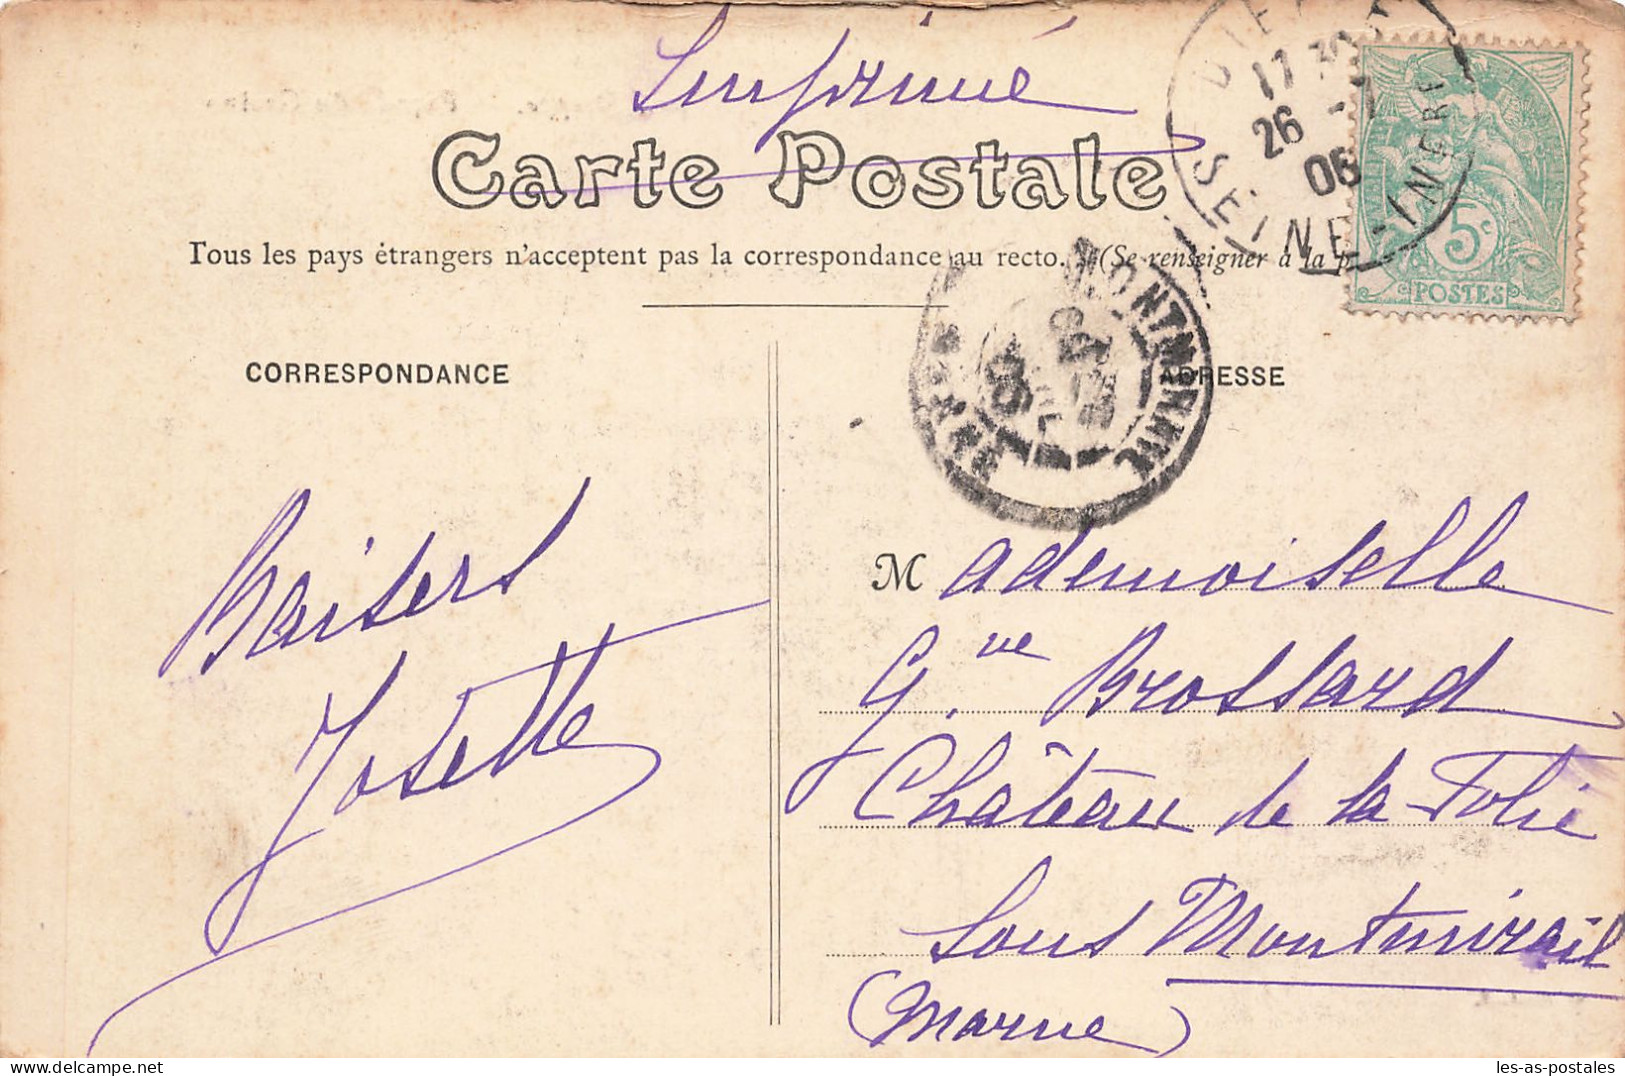 Imprimé
Carte Postale
Tous les pays étrangers n'acceptent pas la correspondance au recto. (Se renseigner à la p
17 30
26 -
06
SEINE-INFRE
5c
POSTES
MONTMIRAIL
MARNE
06
CORRESPONDANCE
ADRESSE
Baisers
Josette
Mademoiselle
Gve Brossard
Château de la Folie
Sous Montmirail
(Marne)
les-as-postales